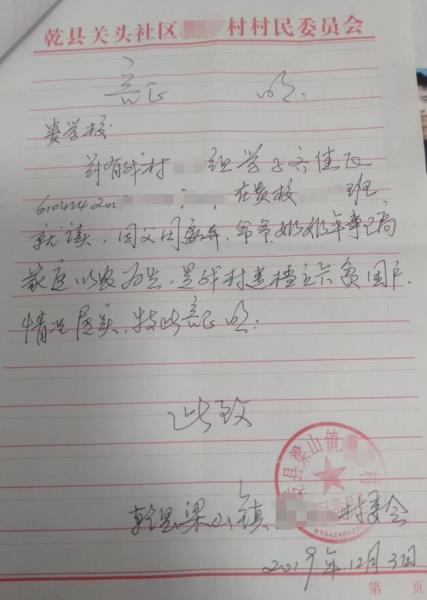 乾县关头社区 村村民委员会
证 明:
贵学校:
兹有我村 组学子齐佳
610424200 在贵校 班
就读,因父母离异,爷爷奶奶年事已高
家庭以农为生,是我村建档立卡贫困户.
情况属实,特此证明:
此致
乾县梁山镇 村委会
2019年12月3日
县梁山镇 村
第 页